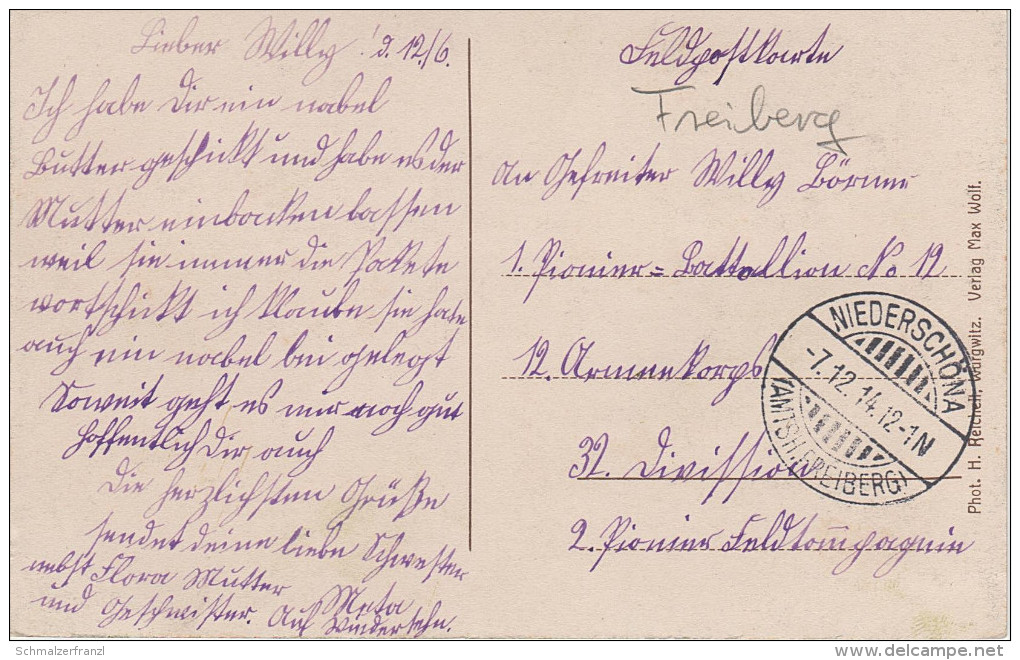 Lieber Willy! d. 12./6.
Ich habe Dir ein nabel
Butter geschickt und habe es der
Mutter einbacken lassen
weil sie immer die Pakete
vortschickt ich klaube sie hate
auch ein nabel bei gelegt
Soweit geht es mir noch gut
hoffentlich Dir auch
Die herzlichsten Grüße
sendet deine liebe Schwester
nebst Flora Mutter Meta
und Geschwister. Auf Widersehn.
Feldpostkarte
Freiberg
an Gefreiter Willy Börner
1. Pionier=Battallion No 12
12. Armeekorps
32. Division
2. Pionier Feldkompagnie
NIEDERSCHÖNA
-7.12.14.12-1N
(AMTSH. FREIBERG)
Phot. H. Reichelt, Wurgwitz. Verlag Max Wolf.
Schmalzerfranzl
delcampe.net